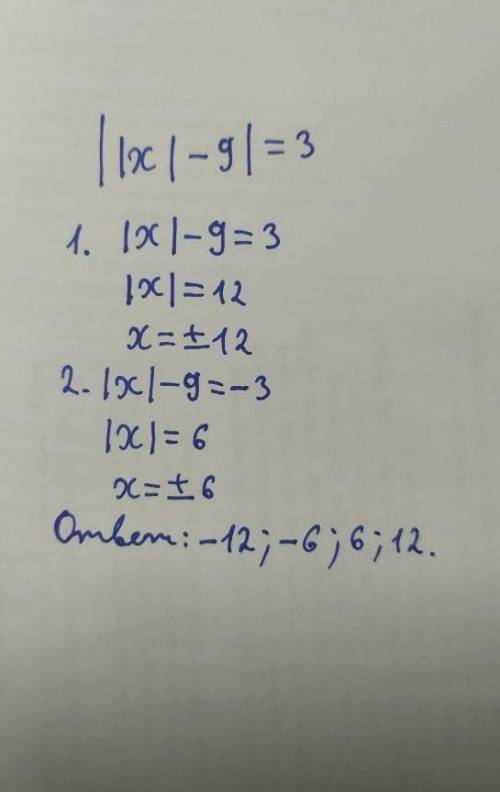 ||x|-9|=3
1. |x|-9=3
|x|=12
x=±12
2. |x|-9=-3
|x|=6
x=±6
Ответ: -12; -6; 6; 12.